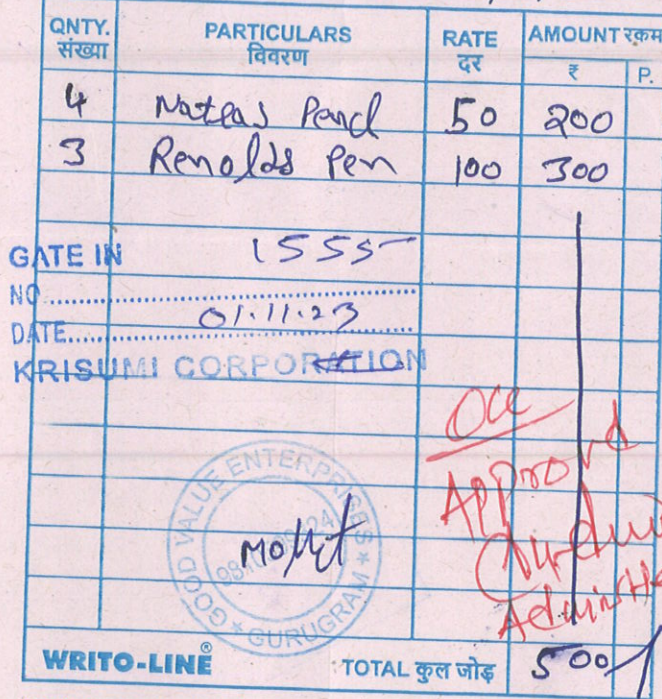 QNTY. PARTICULARS RATE AMOUNT रकम
संख्या विवरण दर ₹ P.
4 Nataas Pencl 50 200
3 Renolds Pen 100 300
GATE IN 1555
NO
DATE 01.11.23
KRISUMI CORPORATION
Approvd
GOOD VALUE ENTERPRISES * GURUGRAM *
Mohit
WRITO-LINE® TOTAL कुल जोड़ 500/